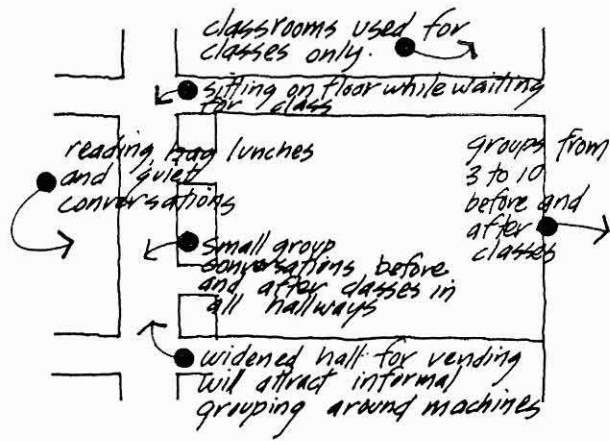 classrooms used for
classes only.
sitting on floor while waiting
for class
reading, bag lunches
and quiet
conversations
groups from
3 to 10
before and
after
classes
small group
conversations before
and after classes in
all hallways
widened hall for vending
will attract informal
grouping around machines